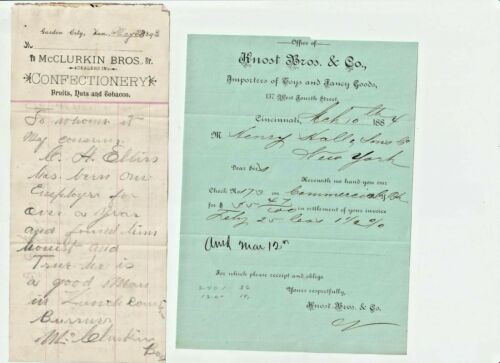 Garden City, Kan. May 1893
To McCLURKIN BROS. Dr.
DEALERS IN
CONFECTIONERY
Fruits, Nuts and Tobacco.
To whom it
may concern
C. H. Ellis
has bern our
Employer for
over a year
and found him
honest and
True he is
a good man
in Lunch
McClurkin
Office of
Knost Bros. & Co.,
Importers of Toys and Fancy Goods,
137 West Fourth Street,
Cincinnati, Mch 10th 1884
M Henry Holl Sons Co
New York
Dear Sirs
Herewith we hand you our
Check No 173 on Commercial Bk
for $ 35 47/100 in settlement of your invoice
Feby 25 less 1 %
Ansd Mar 12th
For which please receipt and oblige
Yours respectfully,
Knost Bros. & Co.